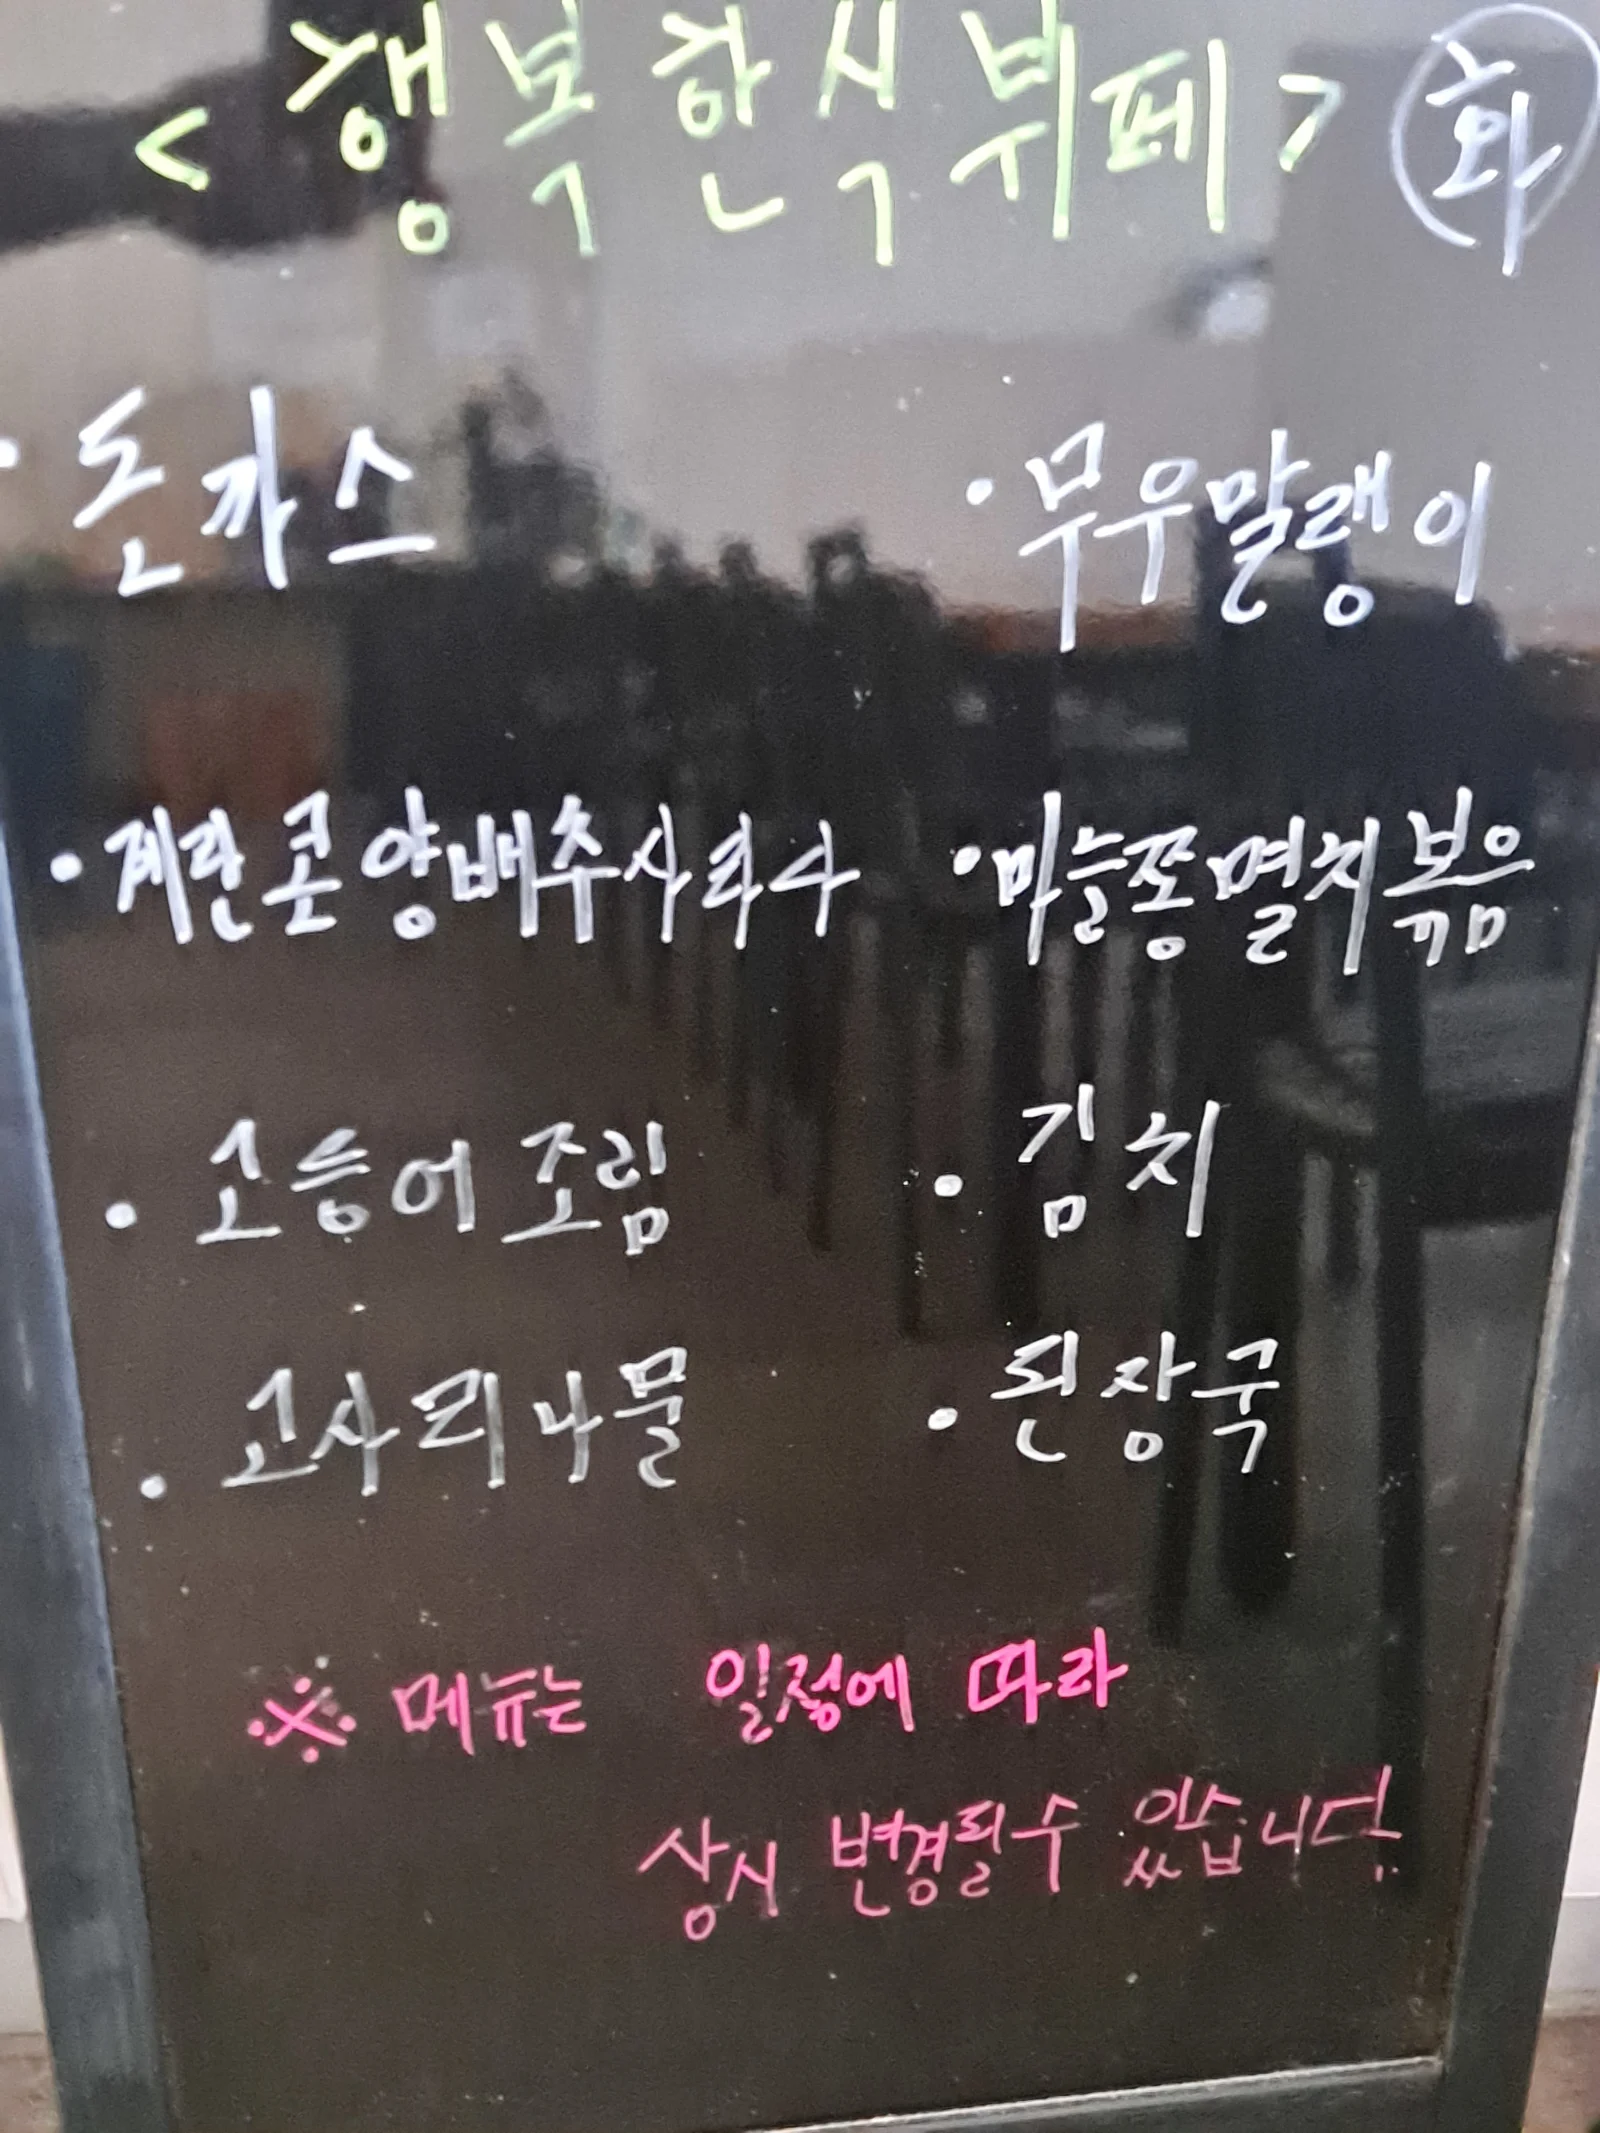 <행복한식뷔페> 화
· 돈까스
· 무우말랭이
· 계란콘양배추사라다
· 마늘쫑멸치볶음
· 고등어조림
· 김치
· 고사리나물
· 된장국
※ 메뉴는 일정에 따라
상시 변경될수 있습니다.